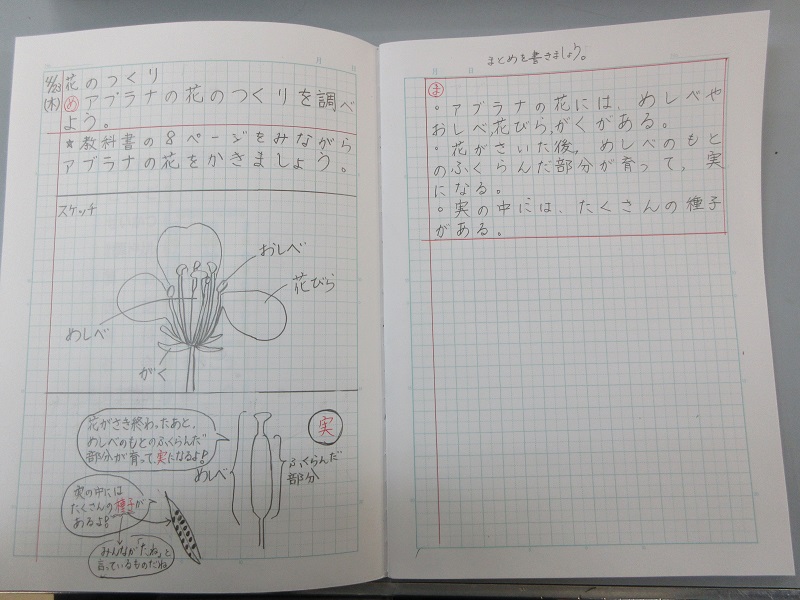 4/23
(木)
花のつくり
め アブラナの花のつくりを調べ
よう。
★教科書の8ページをみながら
アブラナの花をかきましょう。
スケッチ
おしべ
花びら
めしべ
がく
花がさき終わったあと、
めしべのもとのふくらんだ
部分が育って、実になるよ!
実
めしべ
ふくらんだ
部分
実の中には
たくさんの種子が
あるよ!
みんなが「たね」と
言っているものだね
まとめを書きましょう。
ま
。アブラナの花には、めしべや
おしべ,花びら,がくがある。
・花がさいた後,めしべのもと
のふくらんだ部分が育って,実
になる。
。実の中には、たくさんの種子
がある。